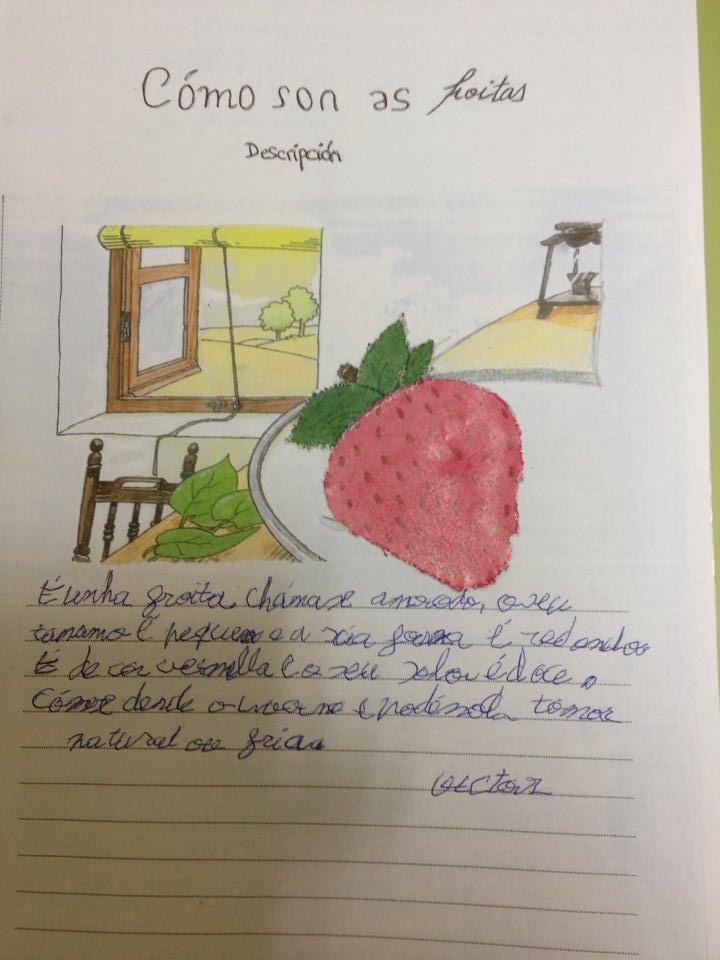 Cómo son as froitas
Descripción
É unha froita. Chámase amorodo, o seu
tamamo é pequeno e a súa forma é redondo
É de cor vermella e o seu sabor é doce,
Cómese desde o inverno e podémola tomar
natural ou fría.
Victor